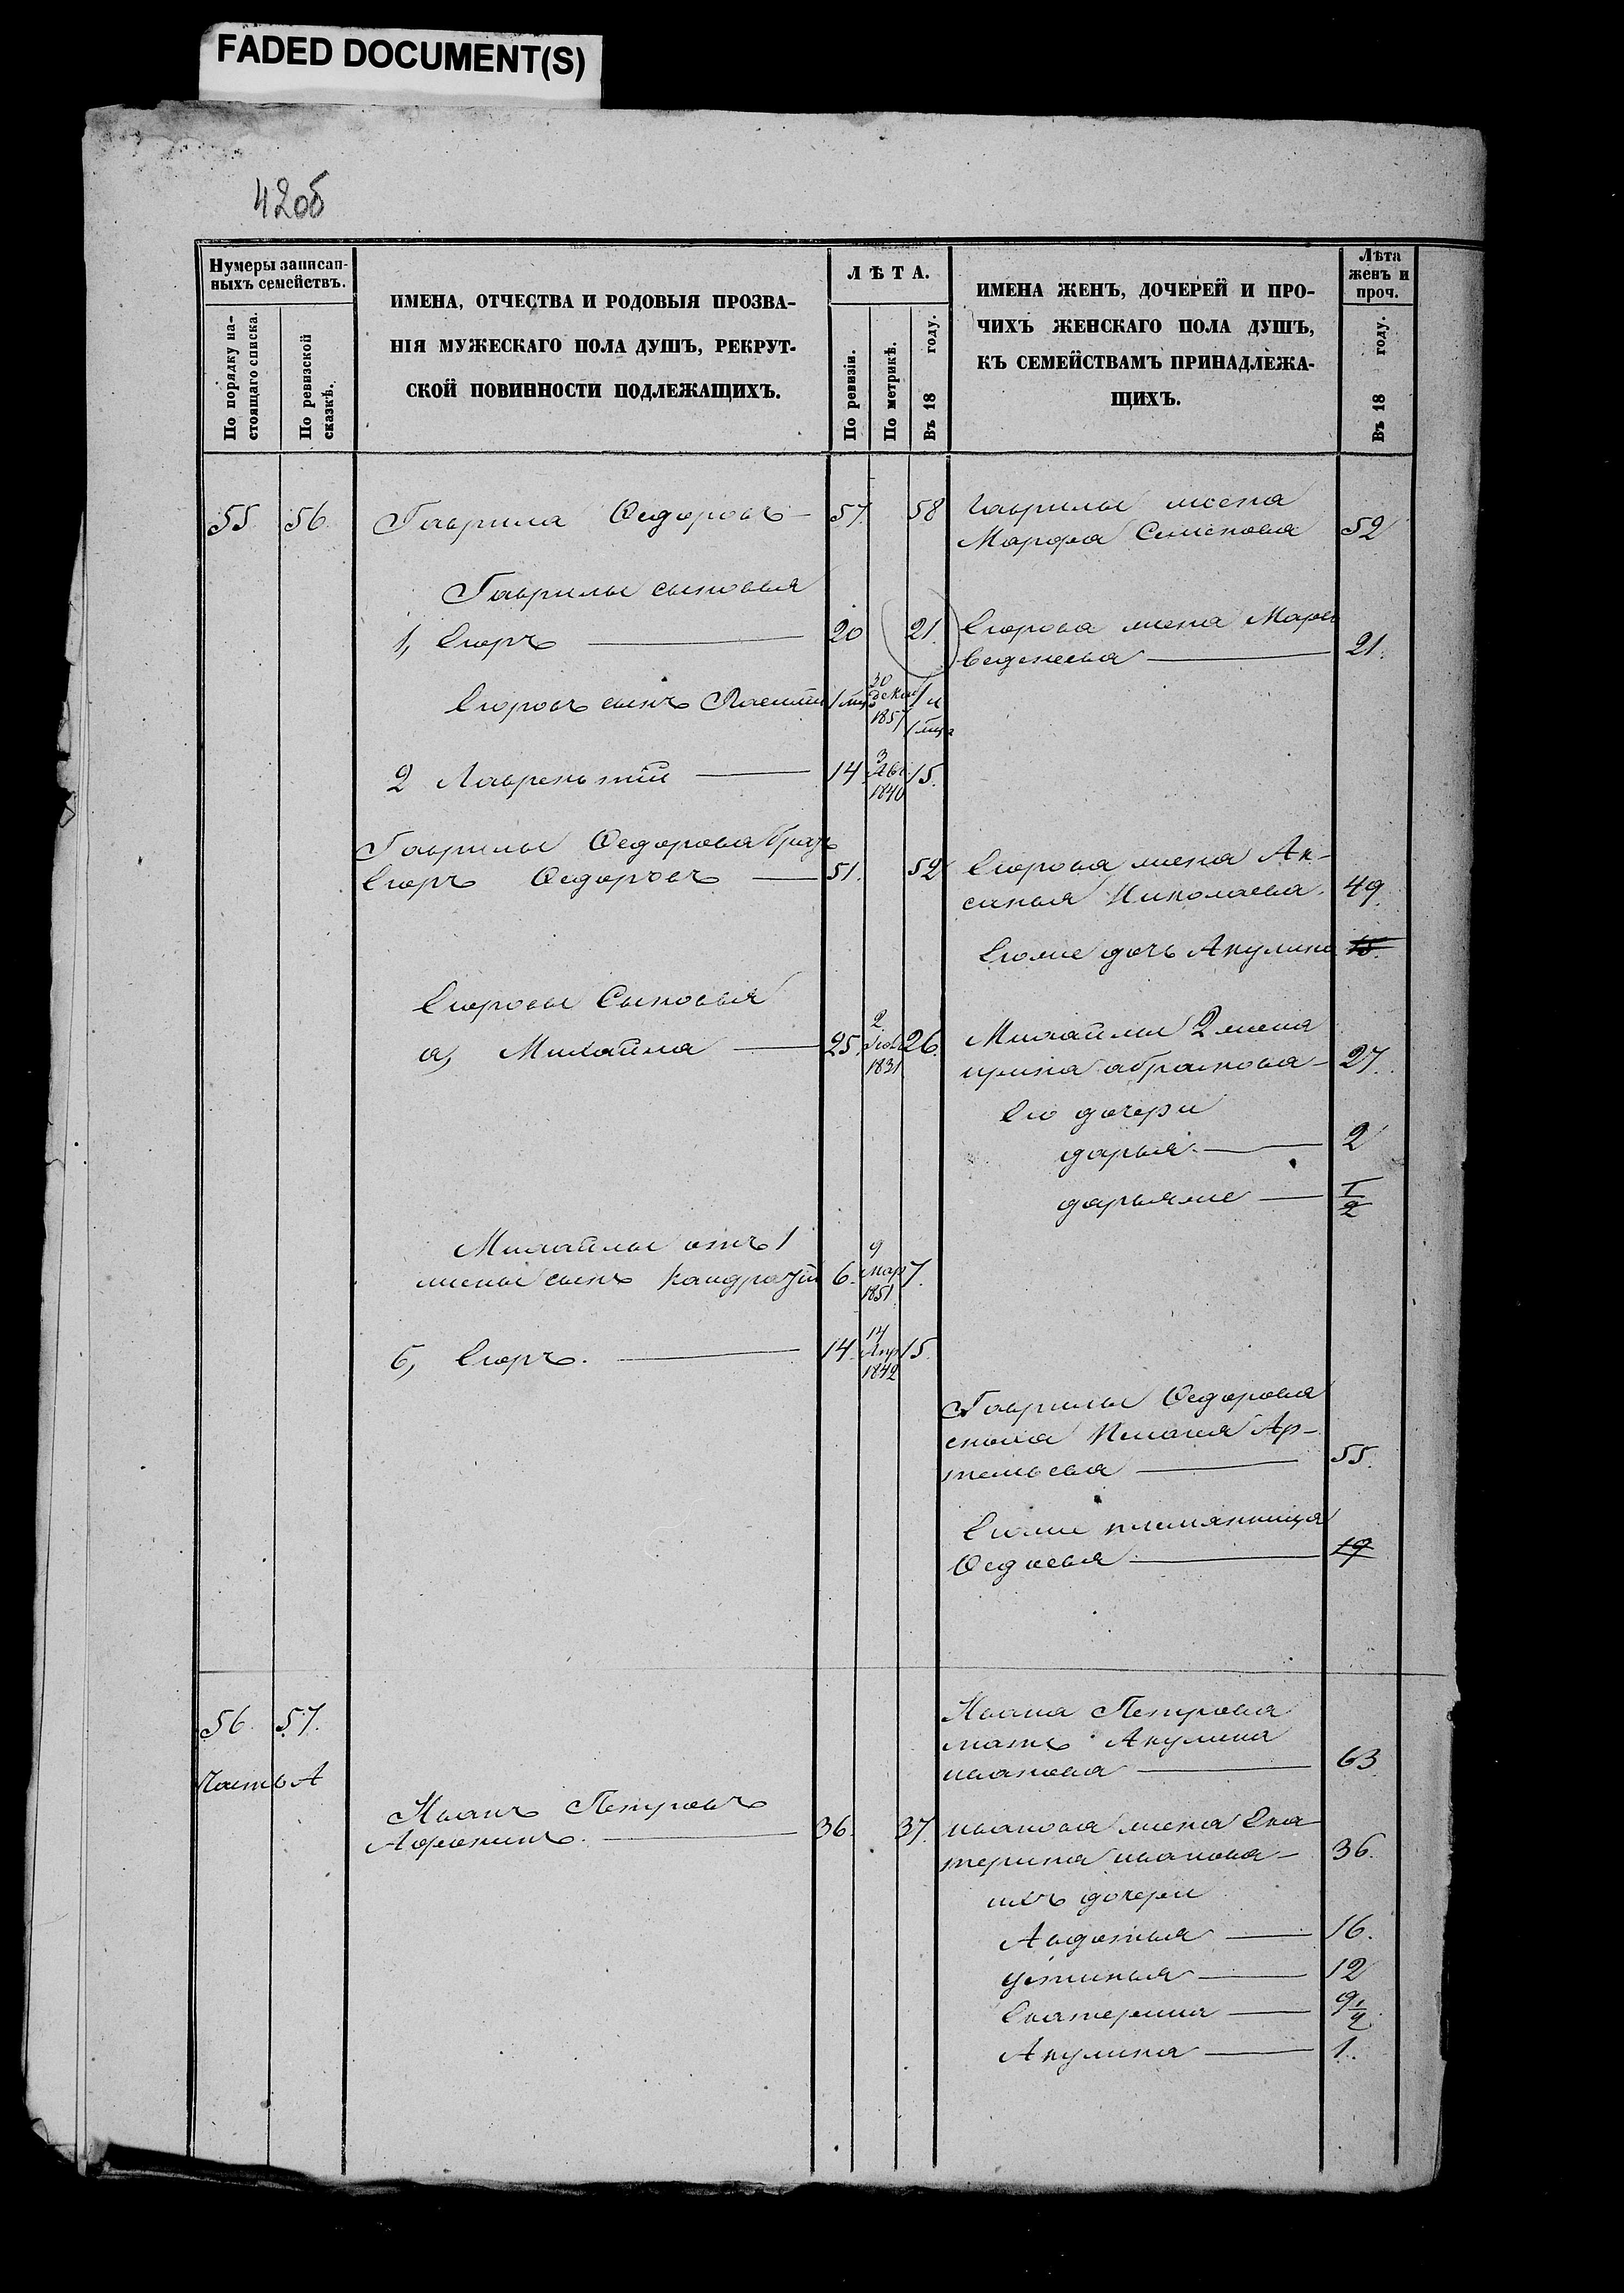 FADED DOCUMENT(S)
42об
Нумеры записан-
ныхъ семействъ.
По порядку на-
стоящаго списка.
По ревизской
сказкѣ.
ИМЕНА, ОТЧЕСТВА И РОДОВЫЯ ПРОЗВА-
НІЯ МУЖЕСКАГО ПОЛА ДУШЪ, РЕКРУТ-
СКОЙ ПОВИННОСТИ ПОДЛЕЖАЩИХЪ.
ЛѢТА.
По ревизіи.
По метрикѣ.
Въ 18 году.
ИМЕНА ЖЕНЪ, ДОЧЕРЕЙ И ПРО-
ЧИХЪ ЖЕНСКАГО ПОЛА ДУШЪ,
КЪ СЕМЕЙСТВАМЪ ПРИНАДЛЕЖА-
ЩИХЪ.
Лѣта
женъ и
проч.
Въ 18 году.
55. 56. Гаврила Ѳедоровъ 57. 58
Гаврилы жена
Марфа Семенова 52
Гаврилы сыновья
1, Егоръ 20 21.
Егорова жена Марья
веденеева 21.
Егоровъ сынъ 30 дека 1857
2 Лаврентій 14 3 Авг 1840 15.
Гаврилы Ѳедорова братъ
Егоръ Ѳедоровъ 51. 52
Егорова жена Ак-
синья Николаева. 49.
Егоже дочь Акулина 15.
Егоровы Сыновья
а, Михайла 25. 2 1831 26.
Михайлы 2 жена
ирина абрамова 27.
Его дочери
дарья 2
дарьяже 1/2
Михайлы отъ 1
жены сынъ Кандратій 6. 9 Мар 1851 7.
б, Егоръ. 14. 14 Апр 1842 15.
Гаврилы Ѳедорова
сноха Пелагея Ар-
темьева 55.
Егоже племянница
Ѳедосья 19
56. 57.
Часть А
Ивана Петрова
мать Акулина
иванова 63
Иванъ Петровъ
Афонинъ. 36. 37.
иванова жена Ека
терина иванова 36.
ихъ дочери
Авдотья 16.
устинья 12
Екатерина 9 1/2.
Акулина 1.